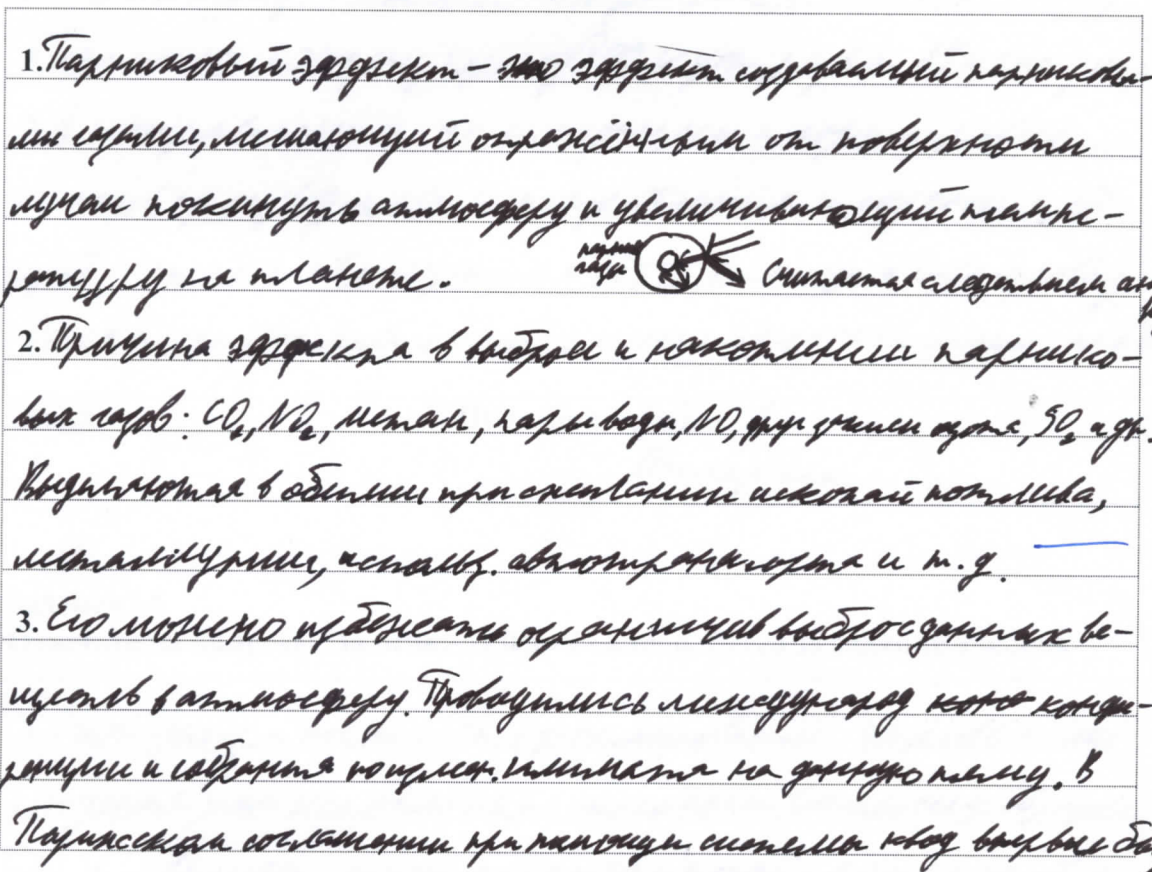 1. Парниковый эффект – это эффект создаваемый парниковы-
ми газами, мешающий отражённым от поверхности
лучам покинуть атмосферу и увеличивающий темпе-
ратуру на планете. парник газы Считается следствием
2. Причина эффекта в выбросе и накоплении парнико-
вых газов: CO2, NO2, метан, пары воды, NO, друг азота, SO2 и др.
Выделяются в обилии при сжигании ископай топлива,
металлургии, использ. автотранспорта и т.д.
3. Его можно избежать ограничив выброс данных ве-
ществ в атмосферу. Проводились международ конфе-
ренции и собрания по измен. климата на данную тему. В
Парижском соглашении при помощи системы квод впервые